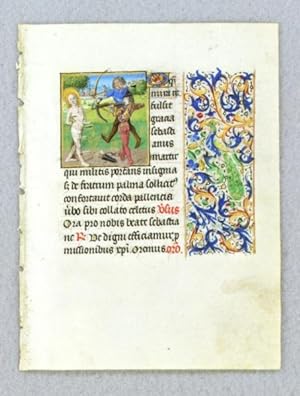 mira re
fulsit
gracia
sebasti
anus
martir
qui militis portans insignia
s; de fratrum palma sollicit'
confortauit corda pallencia
ubo sibi collato celitus Vsus
Ora pro nobis beate sebastia
ne R Vt digni efficiamur p
missionibus xpi Oremus oro